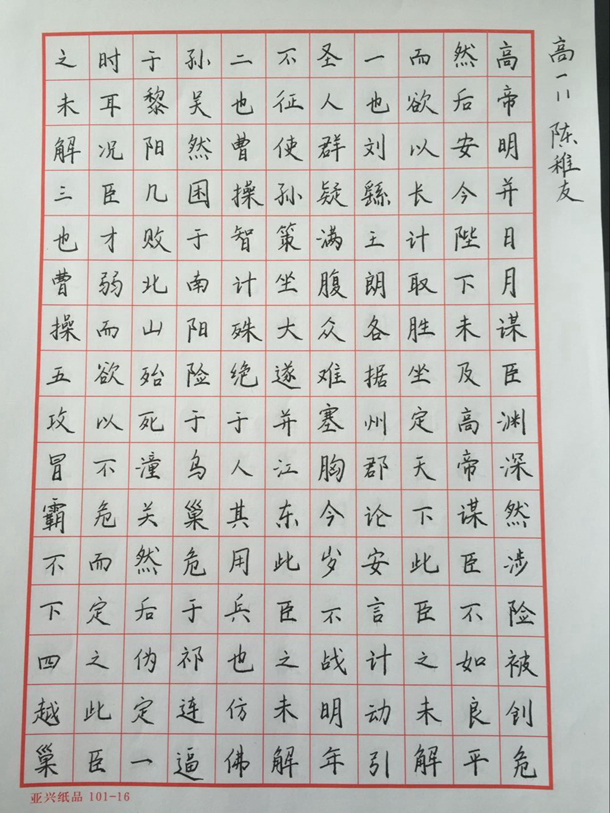 高一11 陈稚友
高帝明并日月谋臣渊深然涉险被创危
然后安今陛下未及高帝谋臣不如良平
而欲以长计取胜坐定天下此臣之未解
一也刘繇王朗各据州郡论安言计动引
圣人群疑满腹众难塞胸今岁不战明年
不征使孙策坐大遂并江东此臣之未解
二也曹操智计殊绝于人其用兵也仿佛
孙吴然困于南阳险于乌巢危于祁连逼
于黎阳几败北山殆死潼关然后伪定一
时耳况臣才弱而欲以不危而定之此臣
之未解三也曹操五攻冒霸不下四越巢
亚兴纸品 101-16